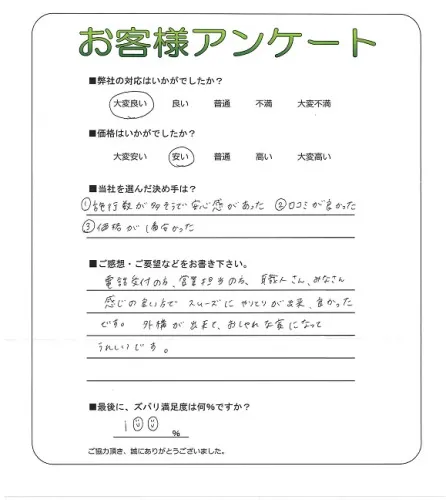 お客様アンケート
■弊社の対応はいかがでしたか？
大変良い 良い 普通 不満 大変不満
■価格はいかがでしたか？
大変安い 安い 普通 高い 大変高い
■当社を選んだ決め手は？
①施行数が多そうで安心感があった ②口コミが良かった
③価格が1番安かった
■ご感想・ご要望などをお書き下さい。
電話受付の方、営業担当の方、職人さん、みなさん
感じの良い方で スムーズに やりとりが出来、良かった
です。 外構が出来て、おしゃれな家になって
うれしいです。
■最後に、ズバリ満足度は何%ですか？
100 %
ご協力頂き、誠にありがとうございました。